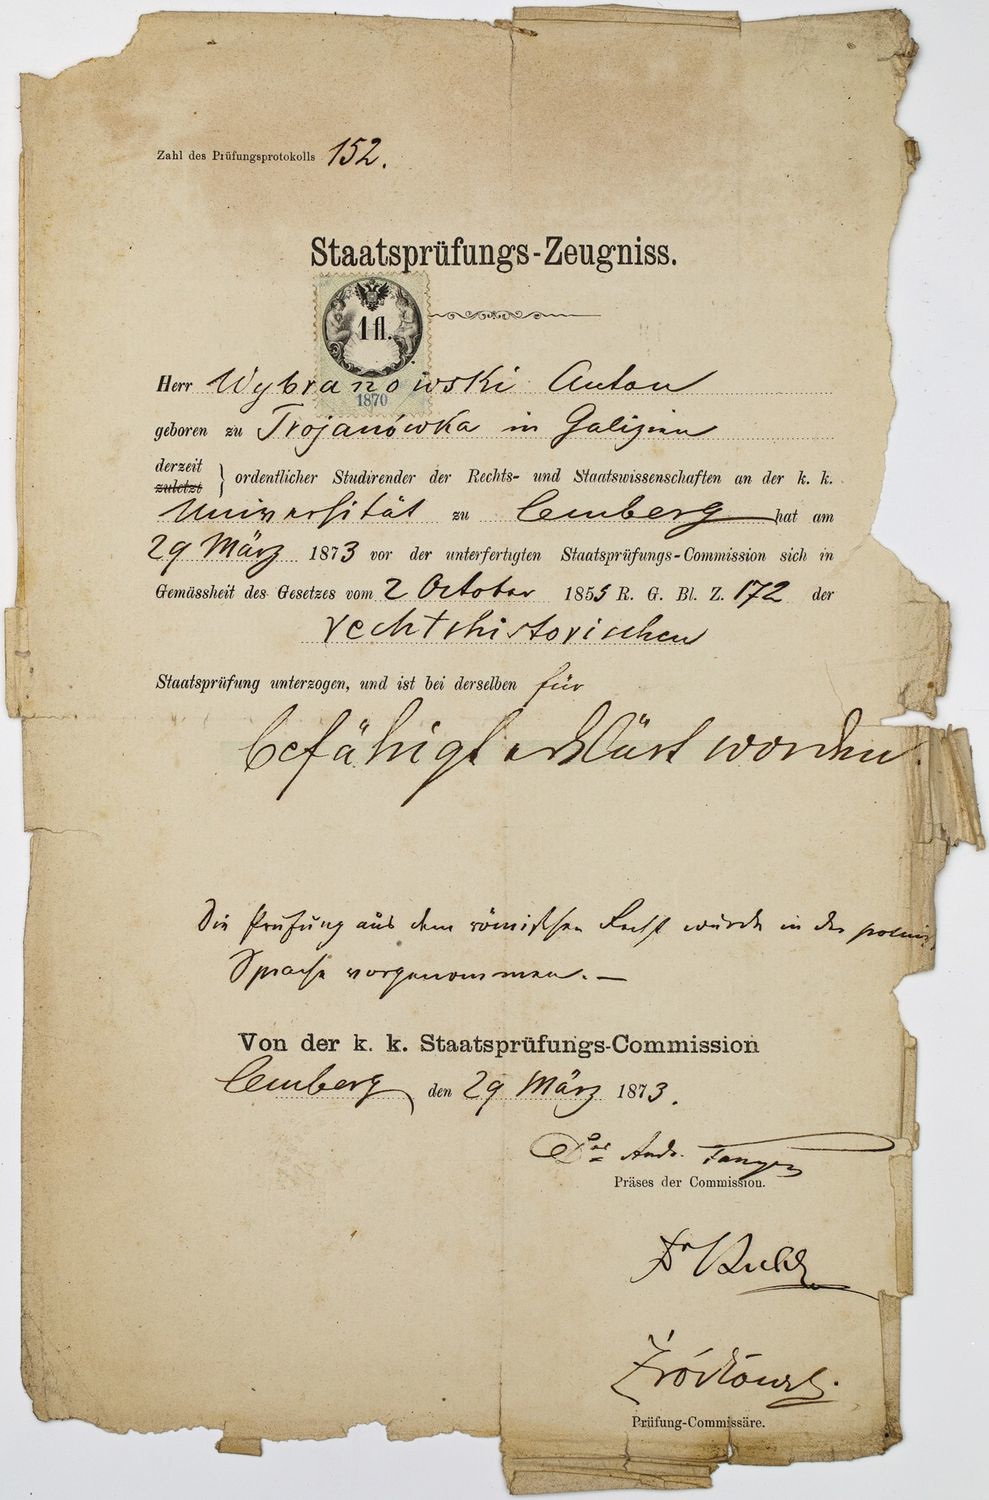 Zahl des Prüfungsprotokolls 152.
Staatsprüfungs-Zeugniss.
1 fl.
1870
Herr Wybranowski Anton
geboren zu Trojanówka in Galizien
derzeit
zuletzt } ordentlicher Studirender der Rechts- und Staatswissenschaften an der k. k.
Universität zu Lemberg hat am
29 März 1873 vor der unterfertigten Staatsprüfungs-Commission sich in
Gemässheit des Gesetzes vom 2 October 1855 R. G. Bl. Z. 172 der
rechtshistorischen
Staatsprüfung unterzogen, und ist bei derselben für
befähigt erklärt worden.
Die Prüfung aus dem römischen Recht wurde in der
Sprache vorgenommen. —
Von der k. k. Staatsprüfungs-Commission
Lemberg den 29 März 1873.
Dor Andr.
Präses der Commission.
Dr
Źródłowski.
Prüfung-Commissäre.